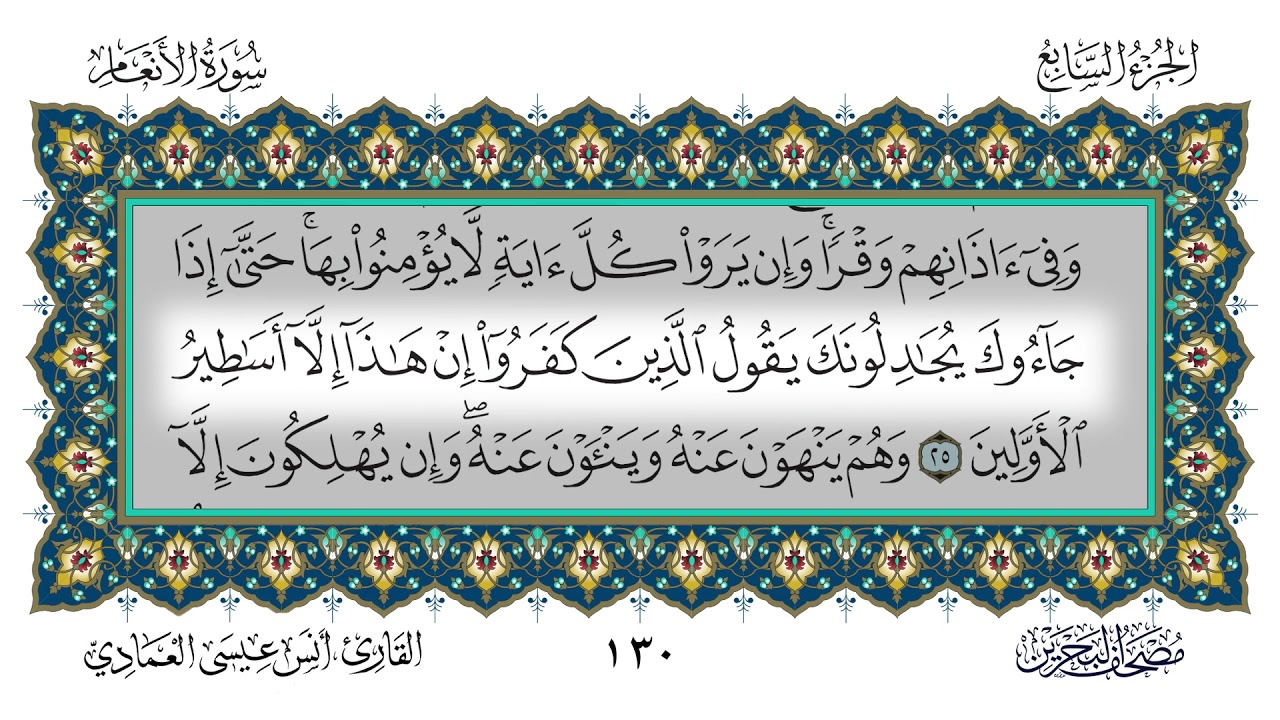 الجُزْءُ السَّابِعُ
سُورَةُ الأَنْعَامِ
وَفِىٓ ءَاذَانِهِمْ وَقْرًاۚ وَإِن يَرَوْا۟ كُلَّ ءَايَةٍ لَّا يُؤْمِنُوا۟ بِهَاۚ حَتَّىٰٓ إِذَا
جَآءُوكَ يُجَٰدِلُونَكَ يَقُولُ ٱلَّذِينَ كَفَرُوٓا۟ إِنْ هَٰذَآ إِلَّآ أَسَٰطِيرُ
ٱلْأَوَّلِينَ ٢٥ وَهُمْ يَنْهَوْنَ عَنْهُ وَيَنْـَٔوْنَ عَنْهُۖ وَإِن يُهْلِكُونَ إِلَّآ
مُصْحَفُ البَحْرَيْن
١٣٠
القَارِئ، أَنَس عِيسَى العَمَادِيّ